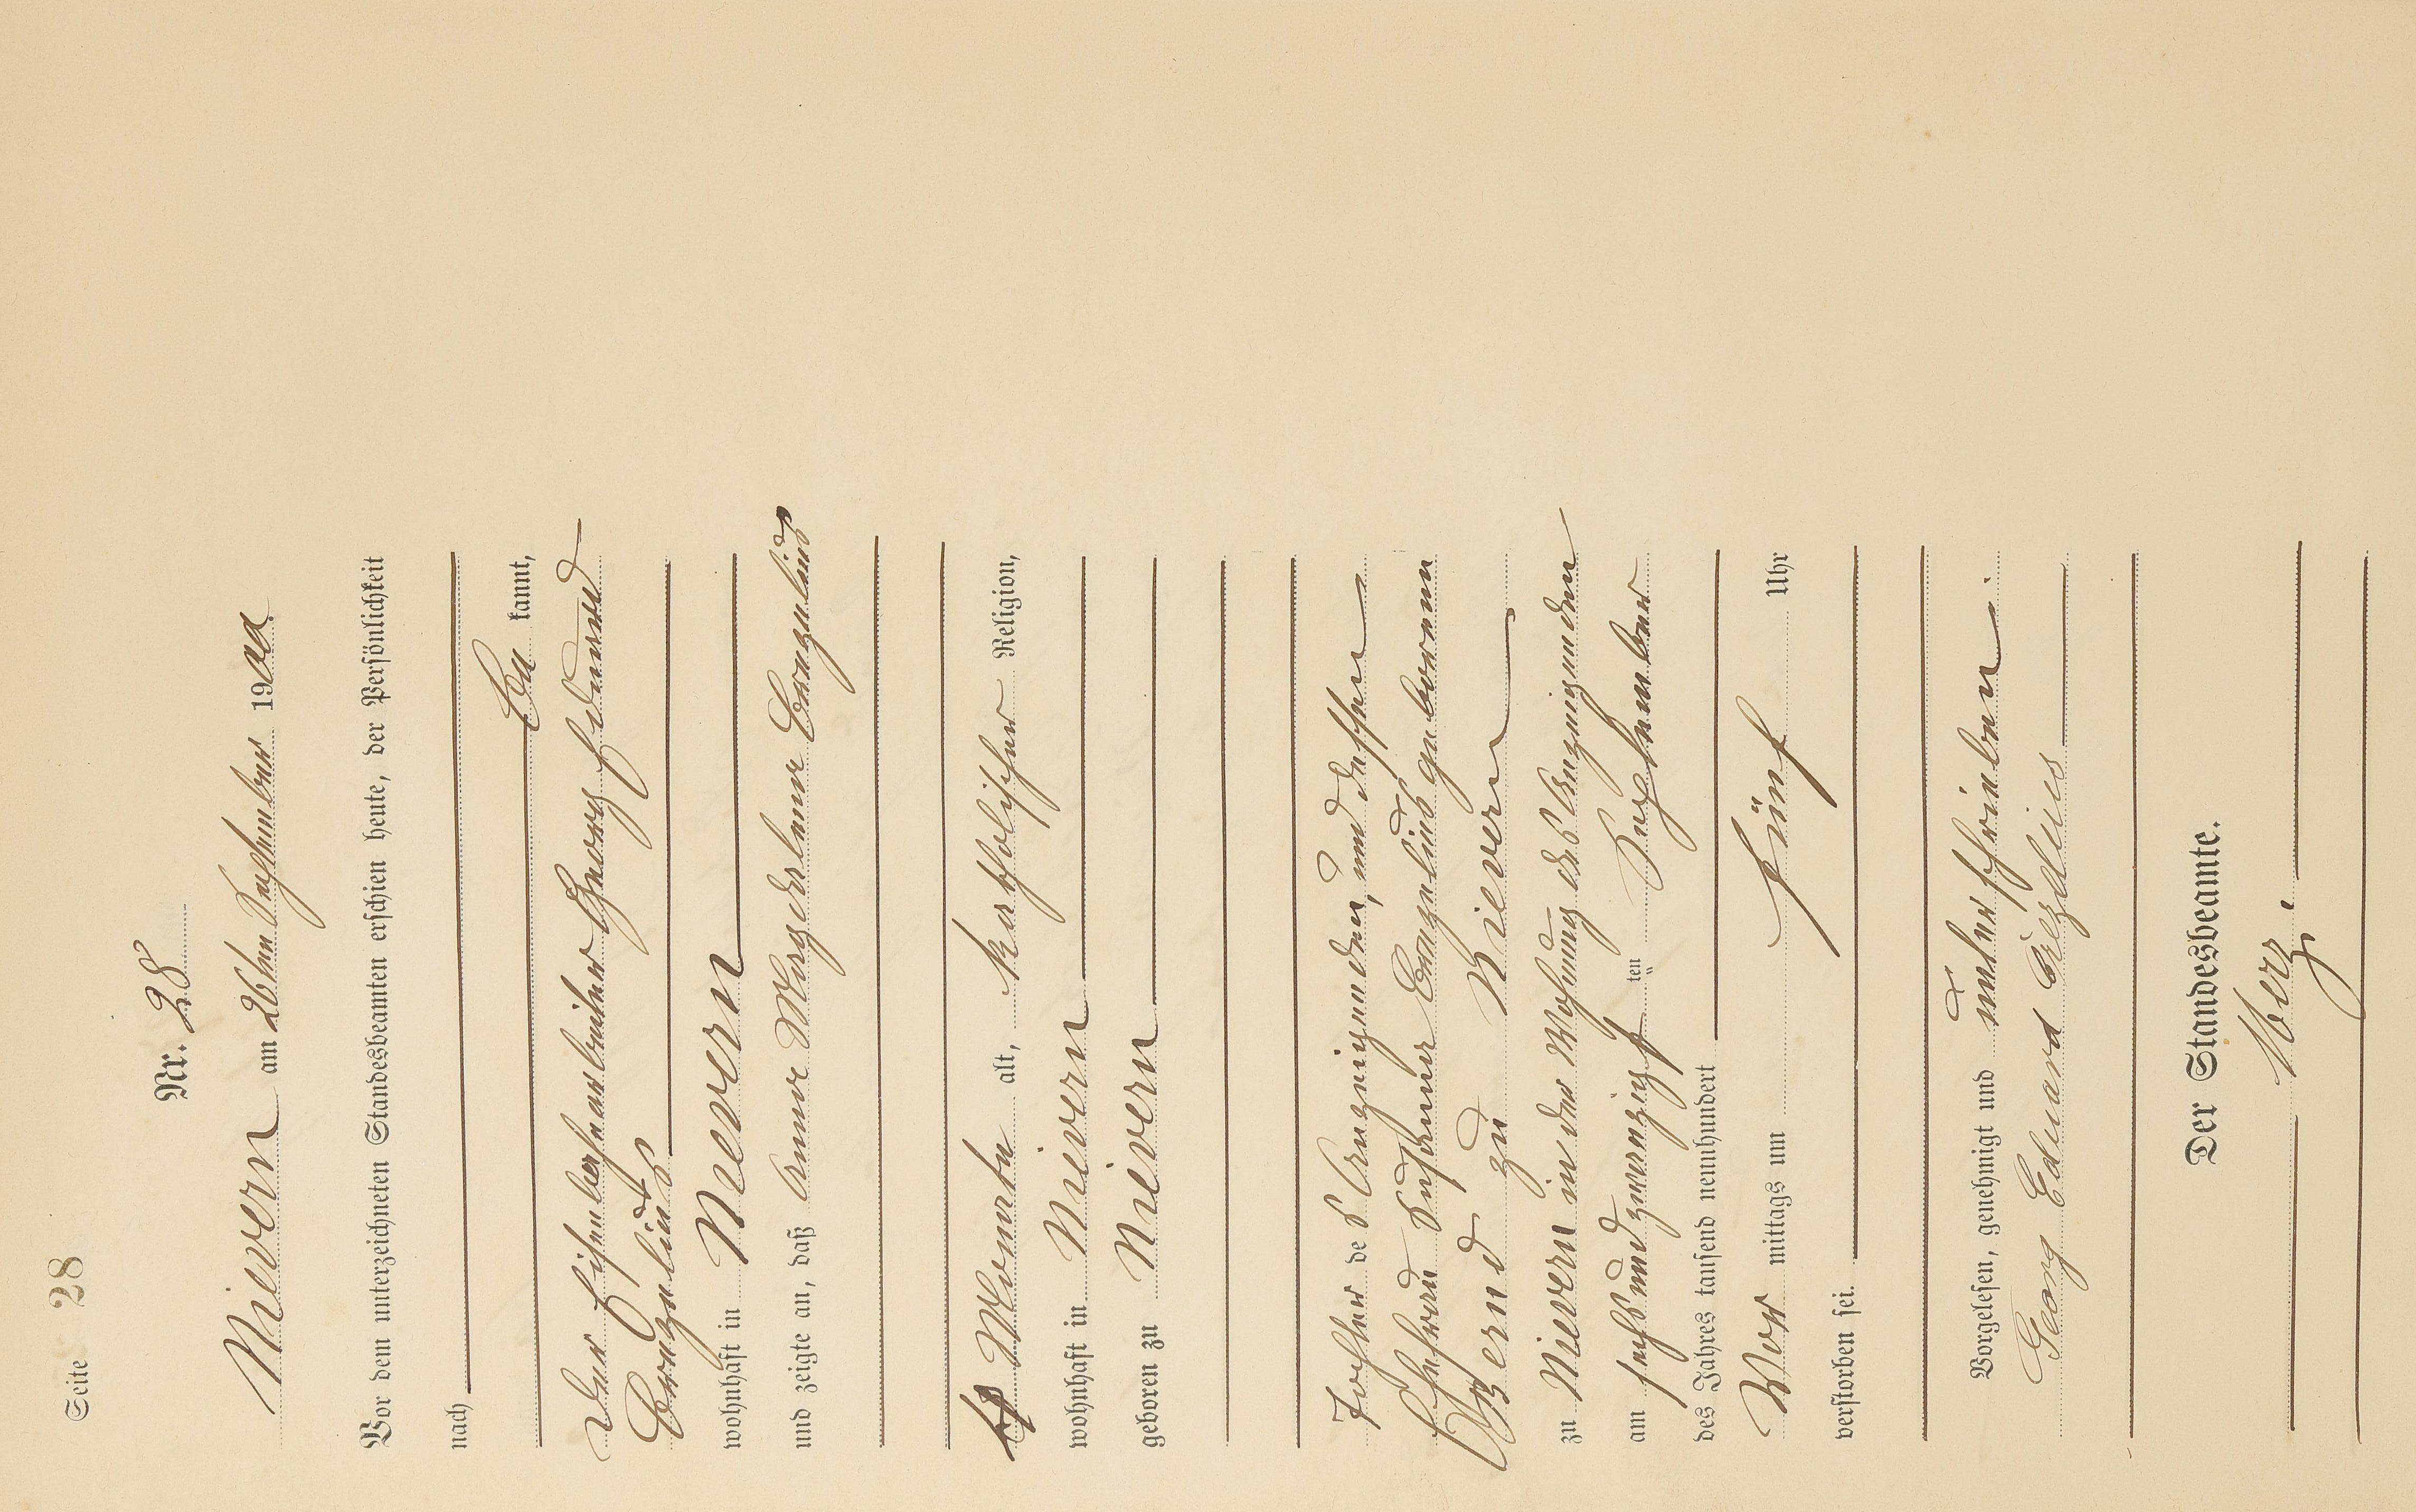 Seite 28
Nr. 28
Nievern am 26ten September 1900
Vor dem unterzeichneten Standesbeamten erschien heute, der Persönlichkeit
nach
be kannt,
der Eisenbahnarbeiter Georg Eduard
wohnhaft in Nievern
und zeigte an, daß Anna Magdalena
Monate alt, katholischer Religion,
wohnhaft in Nievern
geboren zu Nievern
Tochter des Anzeigenden, und dessen
Ehefrau geborenen
zu Nievern
zu Nievern in der Wohnung des Anzeigenden
am sechsundzwanzigsten ten September
des Jahres tausend neunhundert
Vor mittags um fünf Uhr
verstorben sei.
Vorgelesen, genehmigt und unterschrieben.
Georg Eduard
Der Standesbeamte.
Merz.